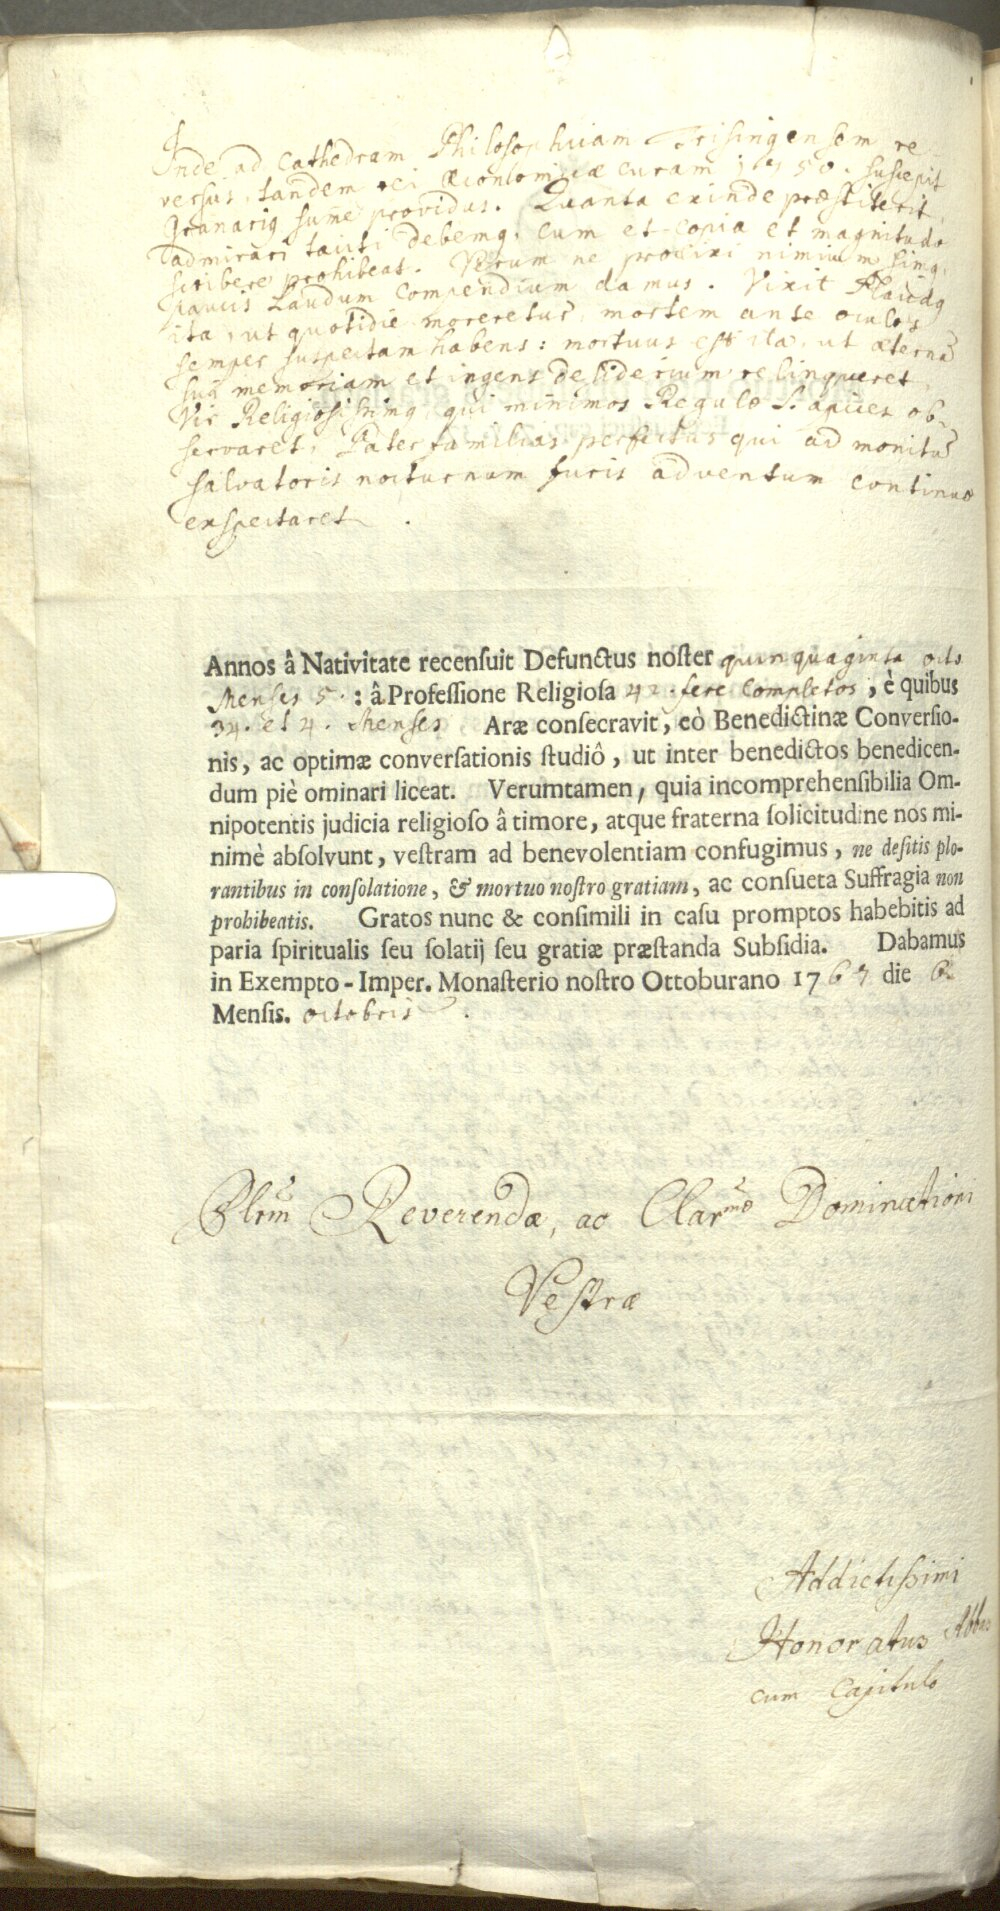 Inde ad Cathedram Philosophicam Frisingensem re
versus, tandem rei œconomicæ curam 50. suscepit
Granarig sume providus. Quanta exinde præstiterit,
admirari debemg, cum et copia et magnitudo
scribere prohibeat. Verum ne prolixi nimium simg,
paucis Laudum Compendium damus. Vixit Placidg
ita, ut quotidie moreretur, mortem ante oculos
semper suspectam habens: mortuus est ita, ut æternã
suã memoriam et ingens desiderium relinqueret,
Vir Religiosissimg, qui minimos Regulæ S. apices ob-
servaret, Pater familias perfectus qui ad monitũ
salvatoris nocturnum furis adventum continuo
exspectaret.
Annos â Nativitate recensuit Defunctus noster quinquaginta octo
Menses 5. : â Professione Religiosa 42. fere Completos, è quibus
34. et 4. Menses Aræ consecravit, eò Benedictinæ Conversio-
nis, ac optimæ conversationis studiô, ut inter benedictos benedicen-
dum piè ominari liceat. Verumtamen, quia incomprehensibilia Om-
nipotentis judicia religioso â timore, atque fraterna solicitudine nos mi-
nimè absolvunt, vestram ad benevolentiam confugimus, ne desitis plo-
rantibus in consolatione, & mortuo nostro gratiam, ac consueta Suffragia non
prohibeatis. Gratos nunc & consimili in casu promptos habebitis ad
paria spiritualis seu solatij seu gratiæ præstanda Subsidia. Dabamus
in Exempto-Imper. Monasterio nostro Ottoburano 1767 die 6.
Mensis. octobris.
Plrm Reverendæ, ac Clarmæ Dominationi
Vestræ
Addictissimi
Honoratus Abbas
cum Capitulo